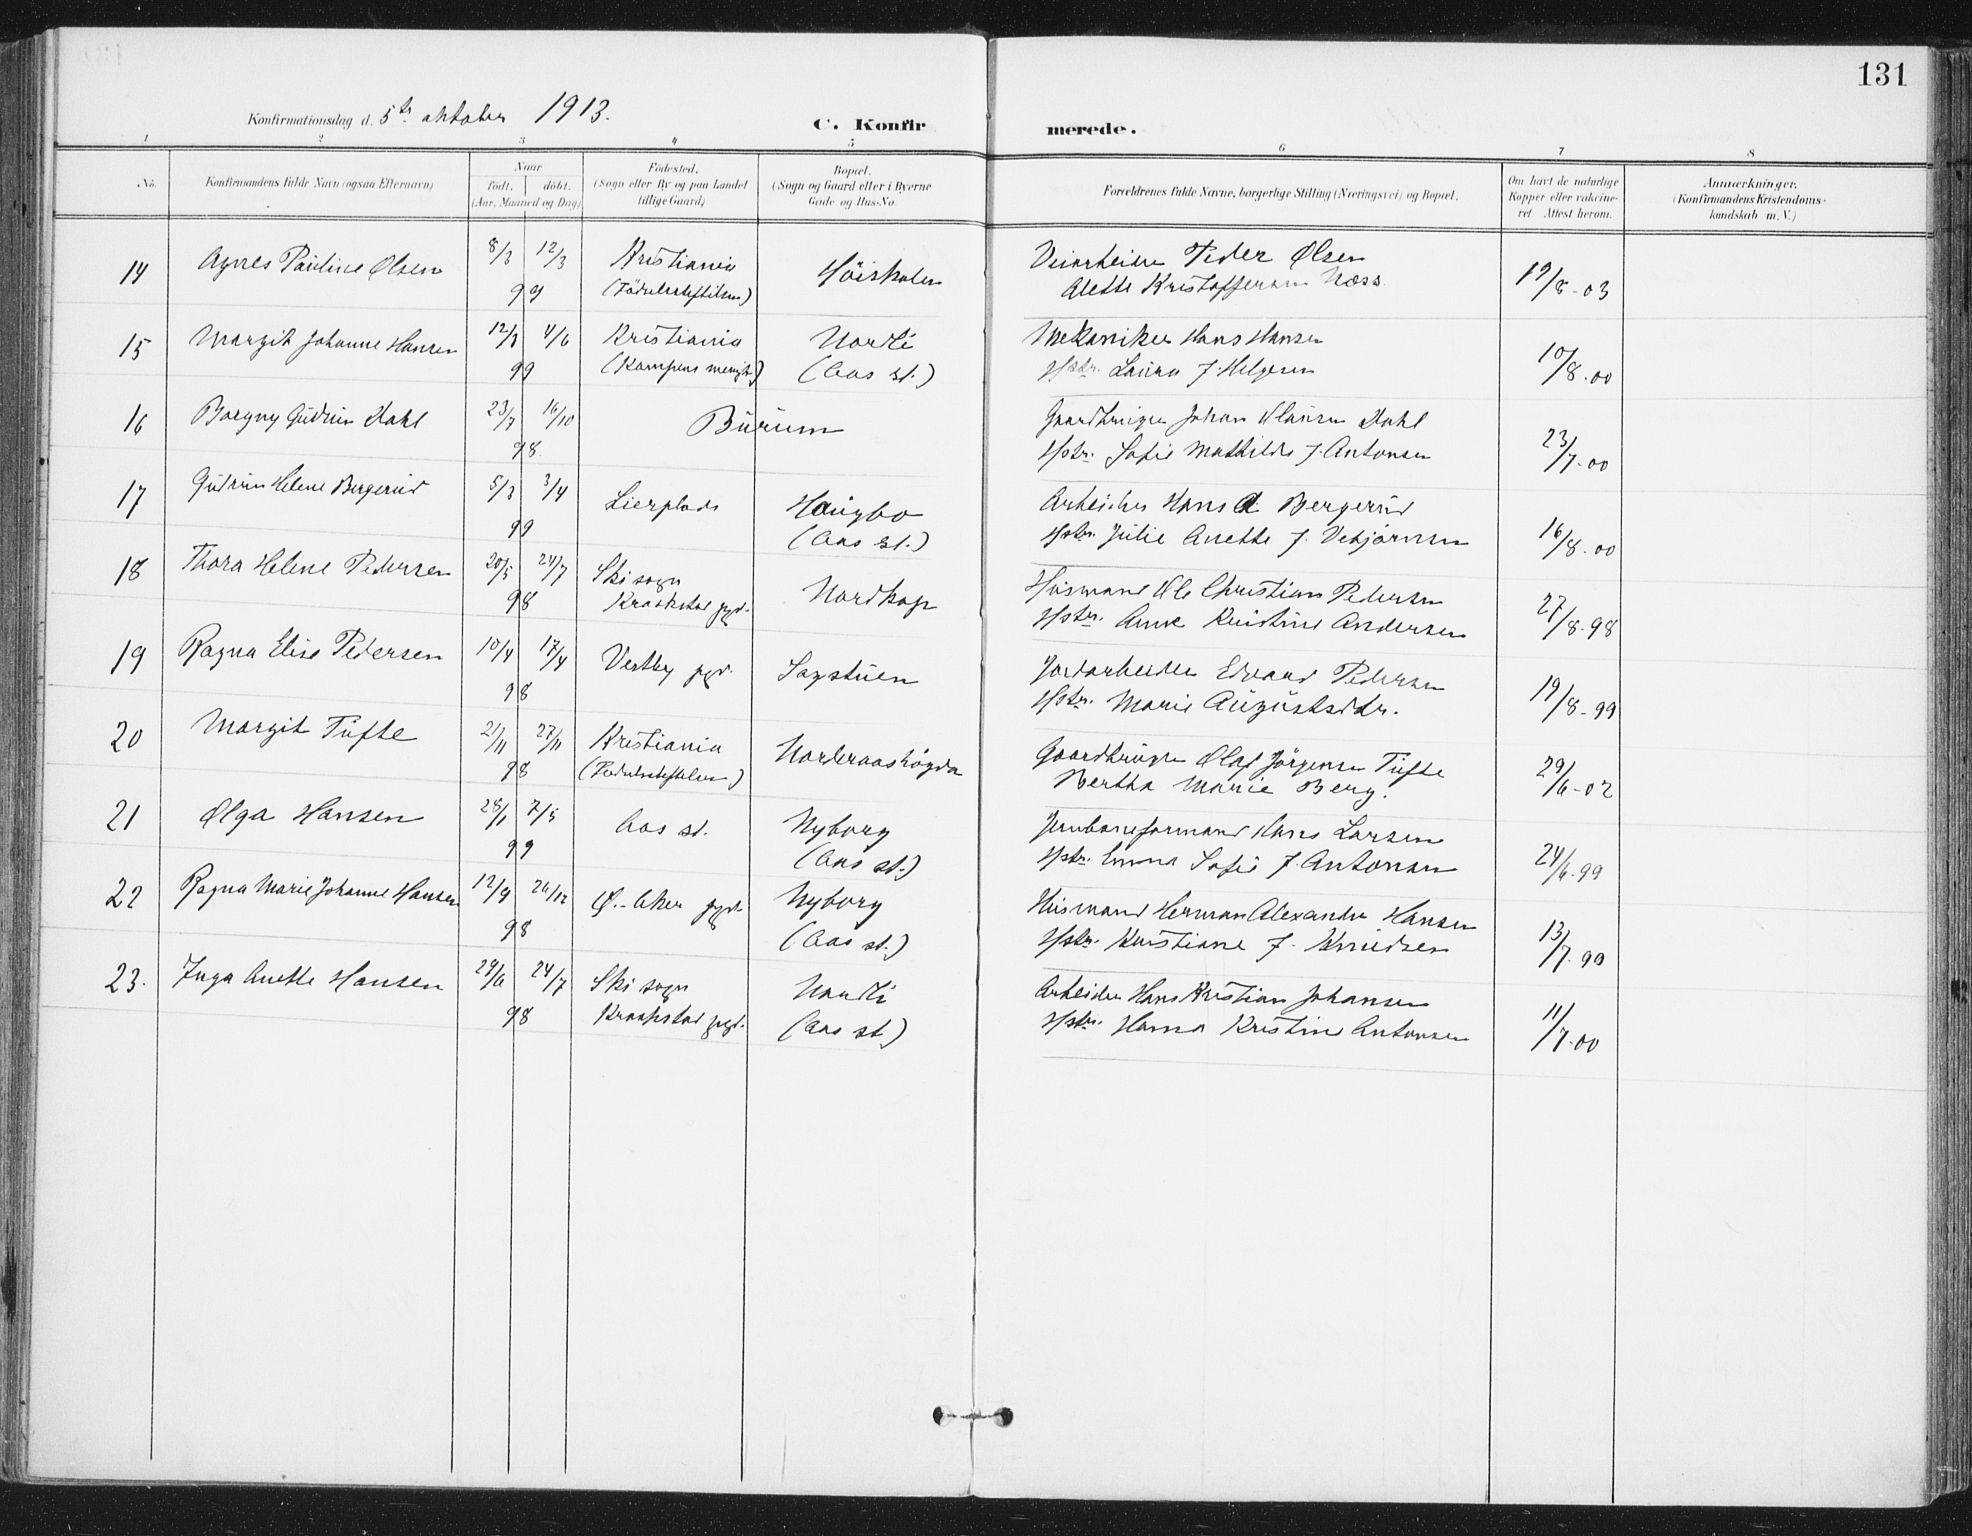 131
Konfirmationsdag d. 5te oktober 1913.
C. Konfirmerede.
1 2 3 4 5 6 7 8
No.
Konfirmandens fulde Navn (ogsaa Efternavn)
Naar
født. døbt.
(Aar, Maaned og Dag)
Fødested.
(Sogn eller By og paa Landet
tillige Gaard)
Bopæl.
(Sogn og Gaard eller i Byerne
Gade og Hus-No.
Forældrenes fulde Navne, borgerlige Stilling (Næringsvei) og Bopæl.
Om havt de naturlige
Kopper eller vakcine-
ret Attest herom.
Anmærkninger.
(Konfirmandens Kristendoms-
kundskab m. V.)
14 Agnes Pauline Olsen 8/3 12/3 Kristiania Høiskolen Veiarbeider Peder Olsen 19/8-03
99 (Fødselsstiftelsen) Alette Kristoffersen Næss
15 Margit Johanne Hansen 12/3 4/6 Kristiania Nordli Mekaniker Hans Hansen 10/8.00
99 (Kampens menigh.) (Aas st.) Hstr. Laura f. Helgesen
16 Borgny Gudrun Dahl 23/7 16/10 Burum Gaardbruger Johan Klausen Dahl 23/7.00
98 Hstr. Sofie Mathilde f. Antonsen
17 Gudrun Helene Bergerud 5/3 3/4 Lierplads Haugbo Arbeider Hans A Bergerud 16/8.00
99 (Aas st.) Hstr. Julie Anette f. Vebjørnsen
18 Thora Helene Pedersen 20/5 24/7 Ski sogn Nordkap Husmand Ole Christian Pedersen 27/8.98
98 Kraakstad pgd. Hstr. Anne Kristine Andersen
19 Ragna Elise Pedersen 10/4 17/4 Vestby pgd. Sagstuen Jordarbeider Edvard Pedersen 19/8-99
98 Hstr. Marie Augustsdtr.
20 Margit Tufte 21/11 27/11 Kristiania Norderaashøgda Gaardbruger Olaf Jørgensen Tufte 29/6-02
98 (Fødselsstiftelsen) Bertha Marie Berg.
21 Olga Hansen 28/1 7/5 Aas st. Nyborg Jernbaneformand Hans Larsen 24/6.99
99 (Aas st.) Hstr. Emma Sofie f. Antonsen
22 Ragna Marie Johanne Hansen 12/9 26/12 Ø.-Aker pgd. Nyborg Husmand Herman Alexander Hansen 13/7.99
98 (Aas st.) Hstr. Kristiane f. Knudsen
23. Inga Anette Hansen 29/6 24/7 Ski sogn Nordli Arbeider Hans Kristian Johansen 11/7.00
98 Kraakstad pgd. (Aas st.) Hstr. Hanna Kristine Antonsen